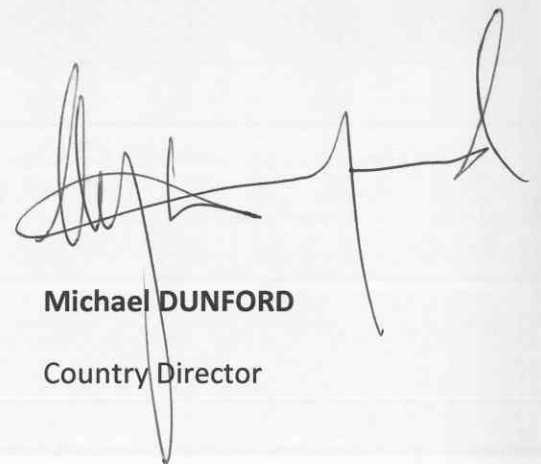 Michael DUNFORD
Country Director